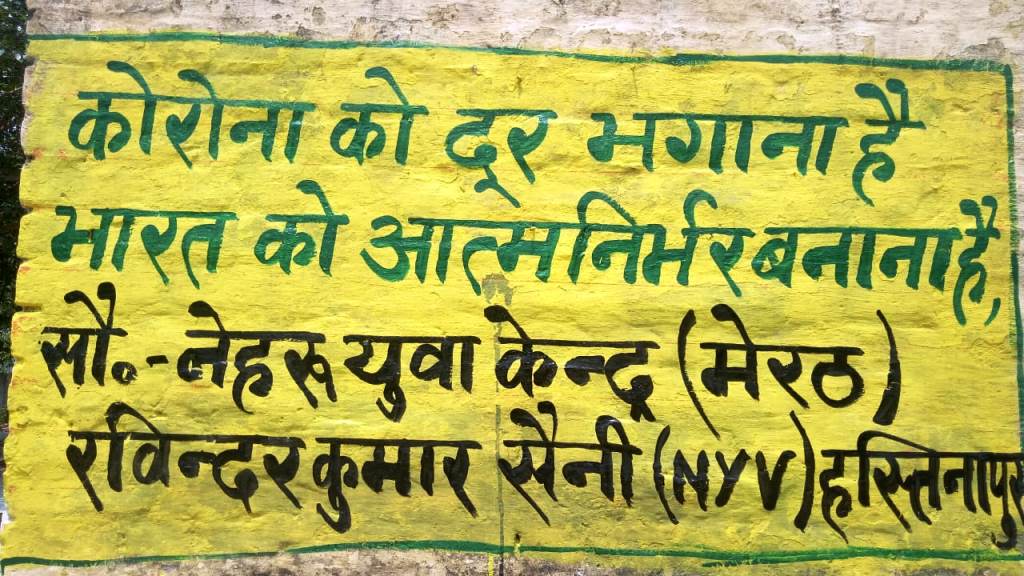 कोरोना को दूर भगाना है
भारत को आत्मनिर्भर बनाना है,
सौ०- नेहरू युवा केन्द्र (मेरठ)
रविन्दर कुमार सैनी (NYV) हस्तिनापुर